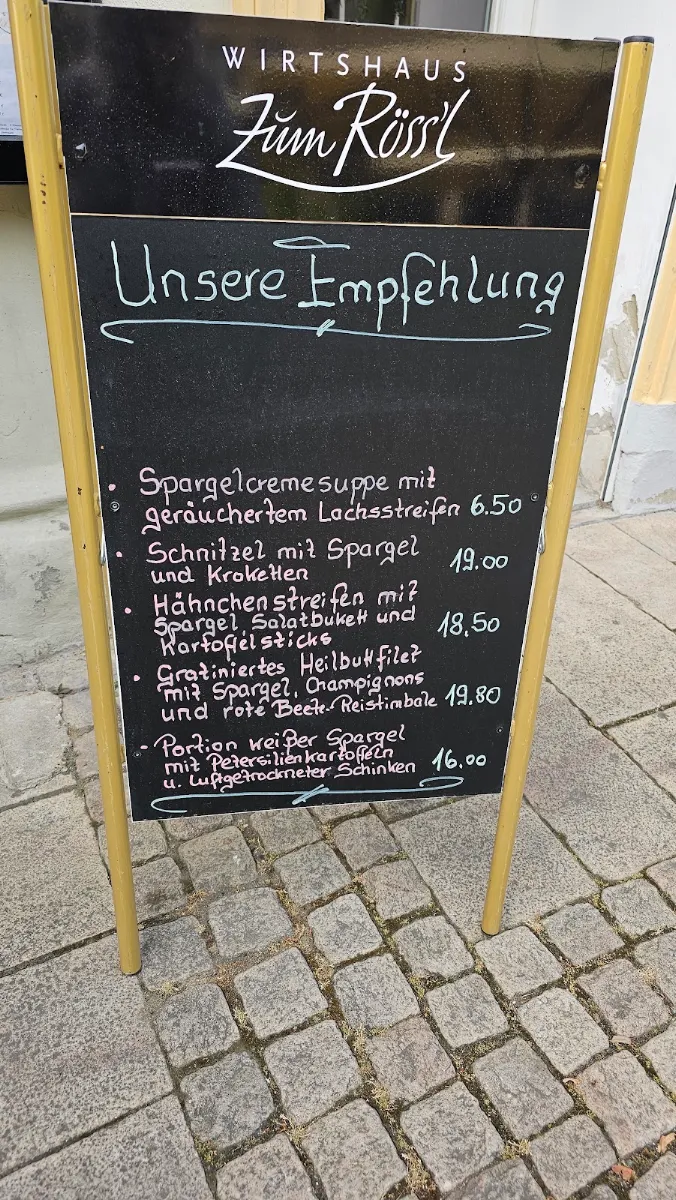 WIRTSHAUS
Zum Röss'l
Unsere Empfehlung
• Spargelcremesuppe mit
geräuchertem Lachsstreifen 6.50
• Schnitzel mit Spargel
und Kroketten 19.00
• Hähnchenstreifen mit
Spargel Salatbukett und 18,50
Kartoffelsticks
• Gratiniertes Heilbuttfilet
mit Spargel, Champignons
und rote Beete-Reistimbale 19.80
- Portion weißer Spargel
mit Petersilienkartoffeln
u. luftgetrockneter Schinken 16.00